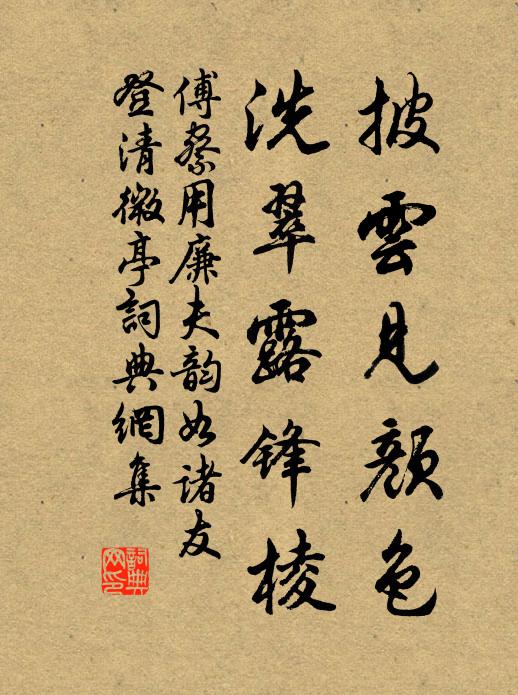 披雲見顏色
洗翠露鋒棱
傅察用廉夫韵如諸友
登清微亭詞典網集
詞典网印